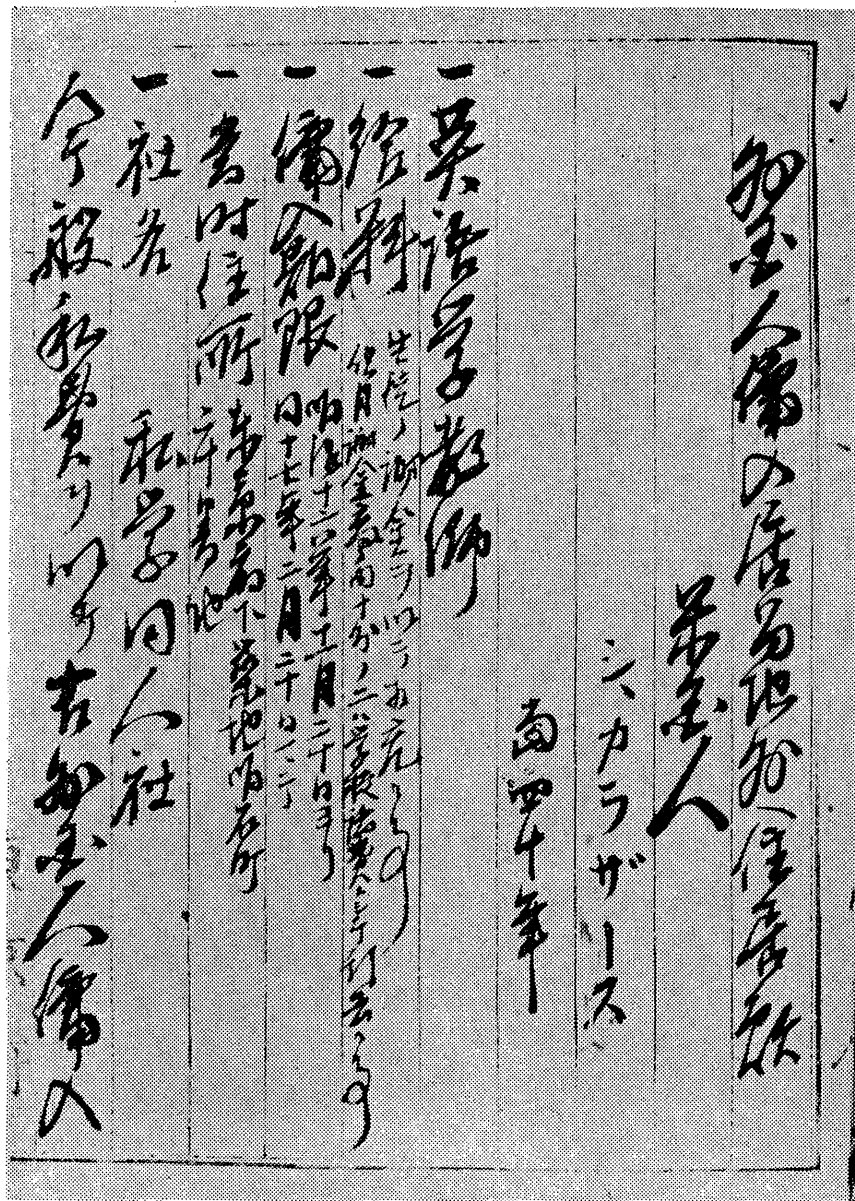 外国人傭入居留地外住居願
米国人
シ、カラザース
当四十年
一英語学教師
一給料 生徒ノ謝金ヲ以テ相充ル事
但月謝金壱円十分ノ二ハ学校諸費ニ引去ル事
一傭入期限 明治十六年十二月二十日ヨリ
同十七年二月二十日マテ
一当時住所 東京府下築地明石町
二十番地
一社名 私学同人社
今般私費ヲ以テ右外国人傭入